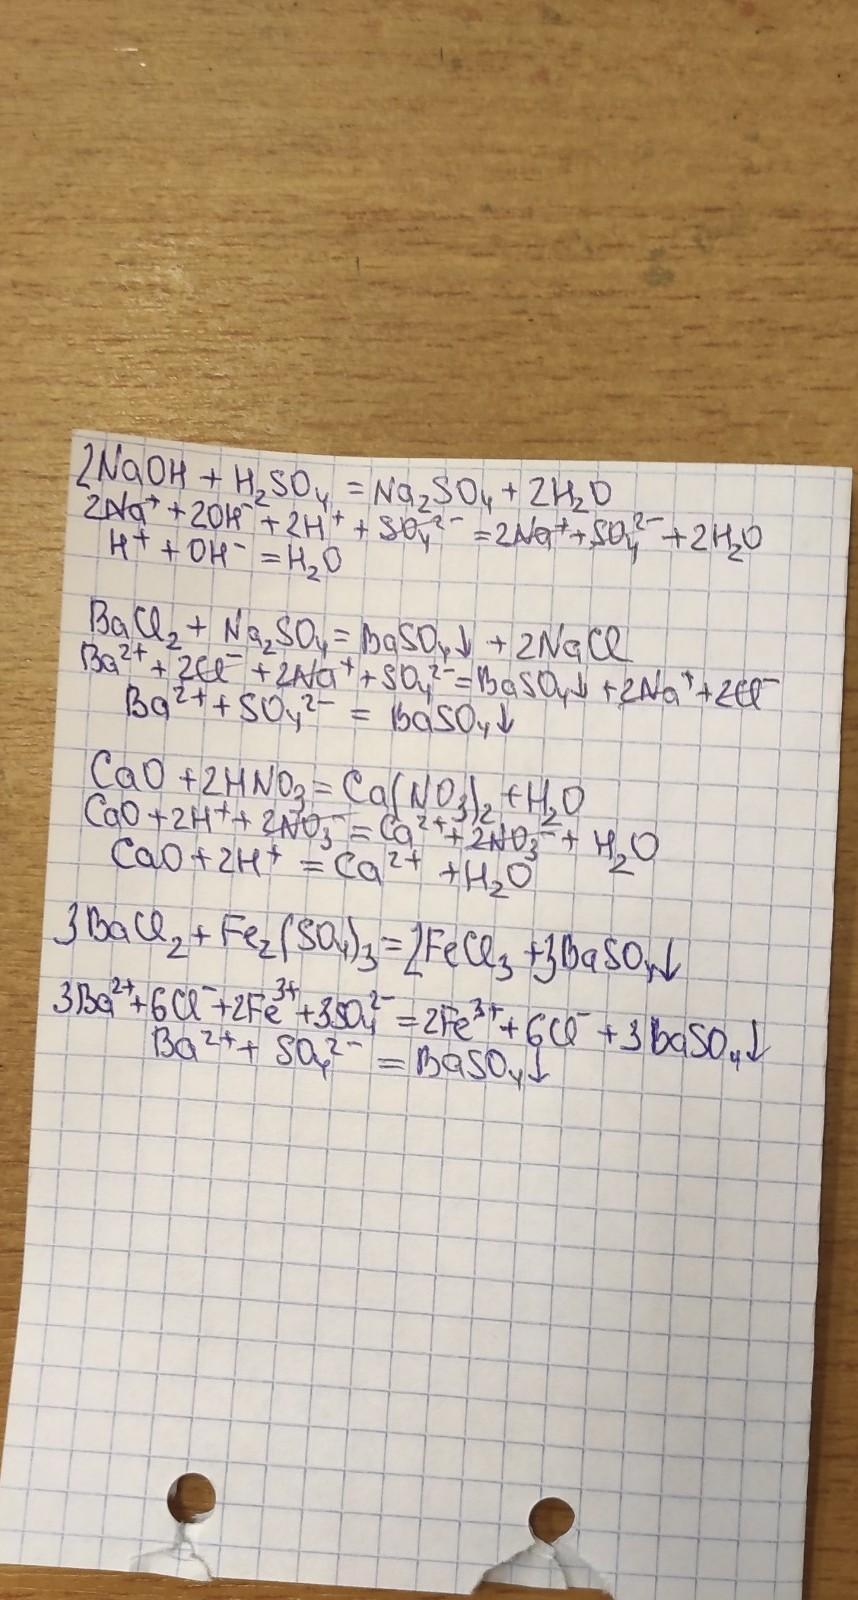 2NaOH + H₂SO₄ = Na₂SO₄ + 2H₂O
2Na⁺ + 2OH⁻ + 2H⁺ + SO₄²⁻ = 2Na⁺ + SO₄²⁻ + 2H₂O
H⁺ + OH⁻ = H₂O
BaCl₂ + Na₂SO₄ = BaSO₄↓ + 2NaCl
Ba²⁺ + 2Cl⁻ + 2Na⁺ + SO₄²⁻ = BaSO₄↓ + 2Na⁺ + 2Cl⁻
Ba²⁺ + SO₄²⁻ = BaSO₄↓
CaO + 2HNO₃ = Ca(NO₃)₂ + H₂O
CaO + 2H⁺ + 2NO₃⁻ = Ca²⁺ + 2NO₃⁻ + H₂O
CaO + 2H⁺ = Ca²⁺ + H₂O
3BaCl₂ + Fe₂(SO₄)₃ = 2FeCl₃ + 3BaSO₄↓
3Ba²⁺ + 6Cl⁻ + 2Fe³⁺ + 3SO₄²⁻ = 2Fe³⁺ + 6Cl⁻ + 3BaSO₄↓
Ba²⁺ + SO₄²⁻ = BaSO₄↓